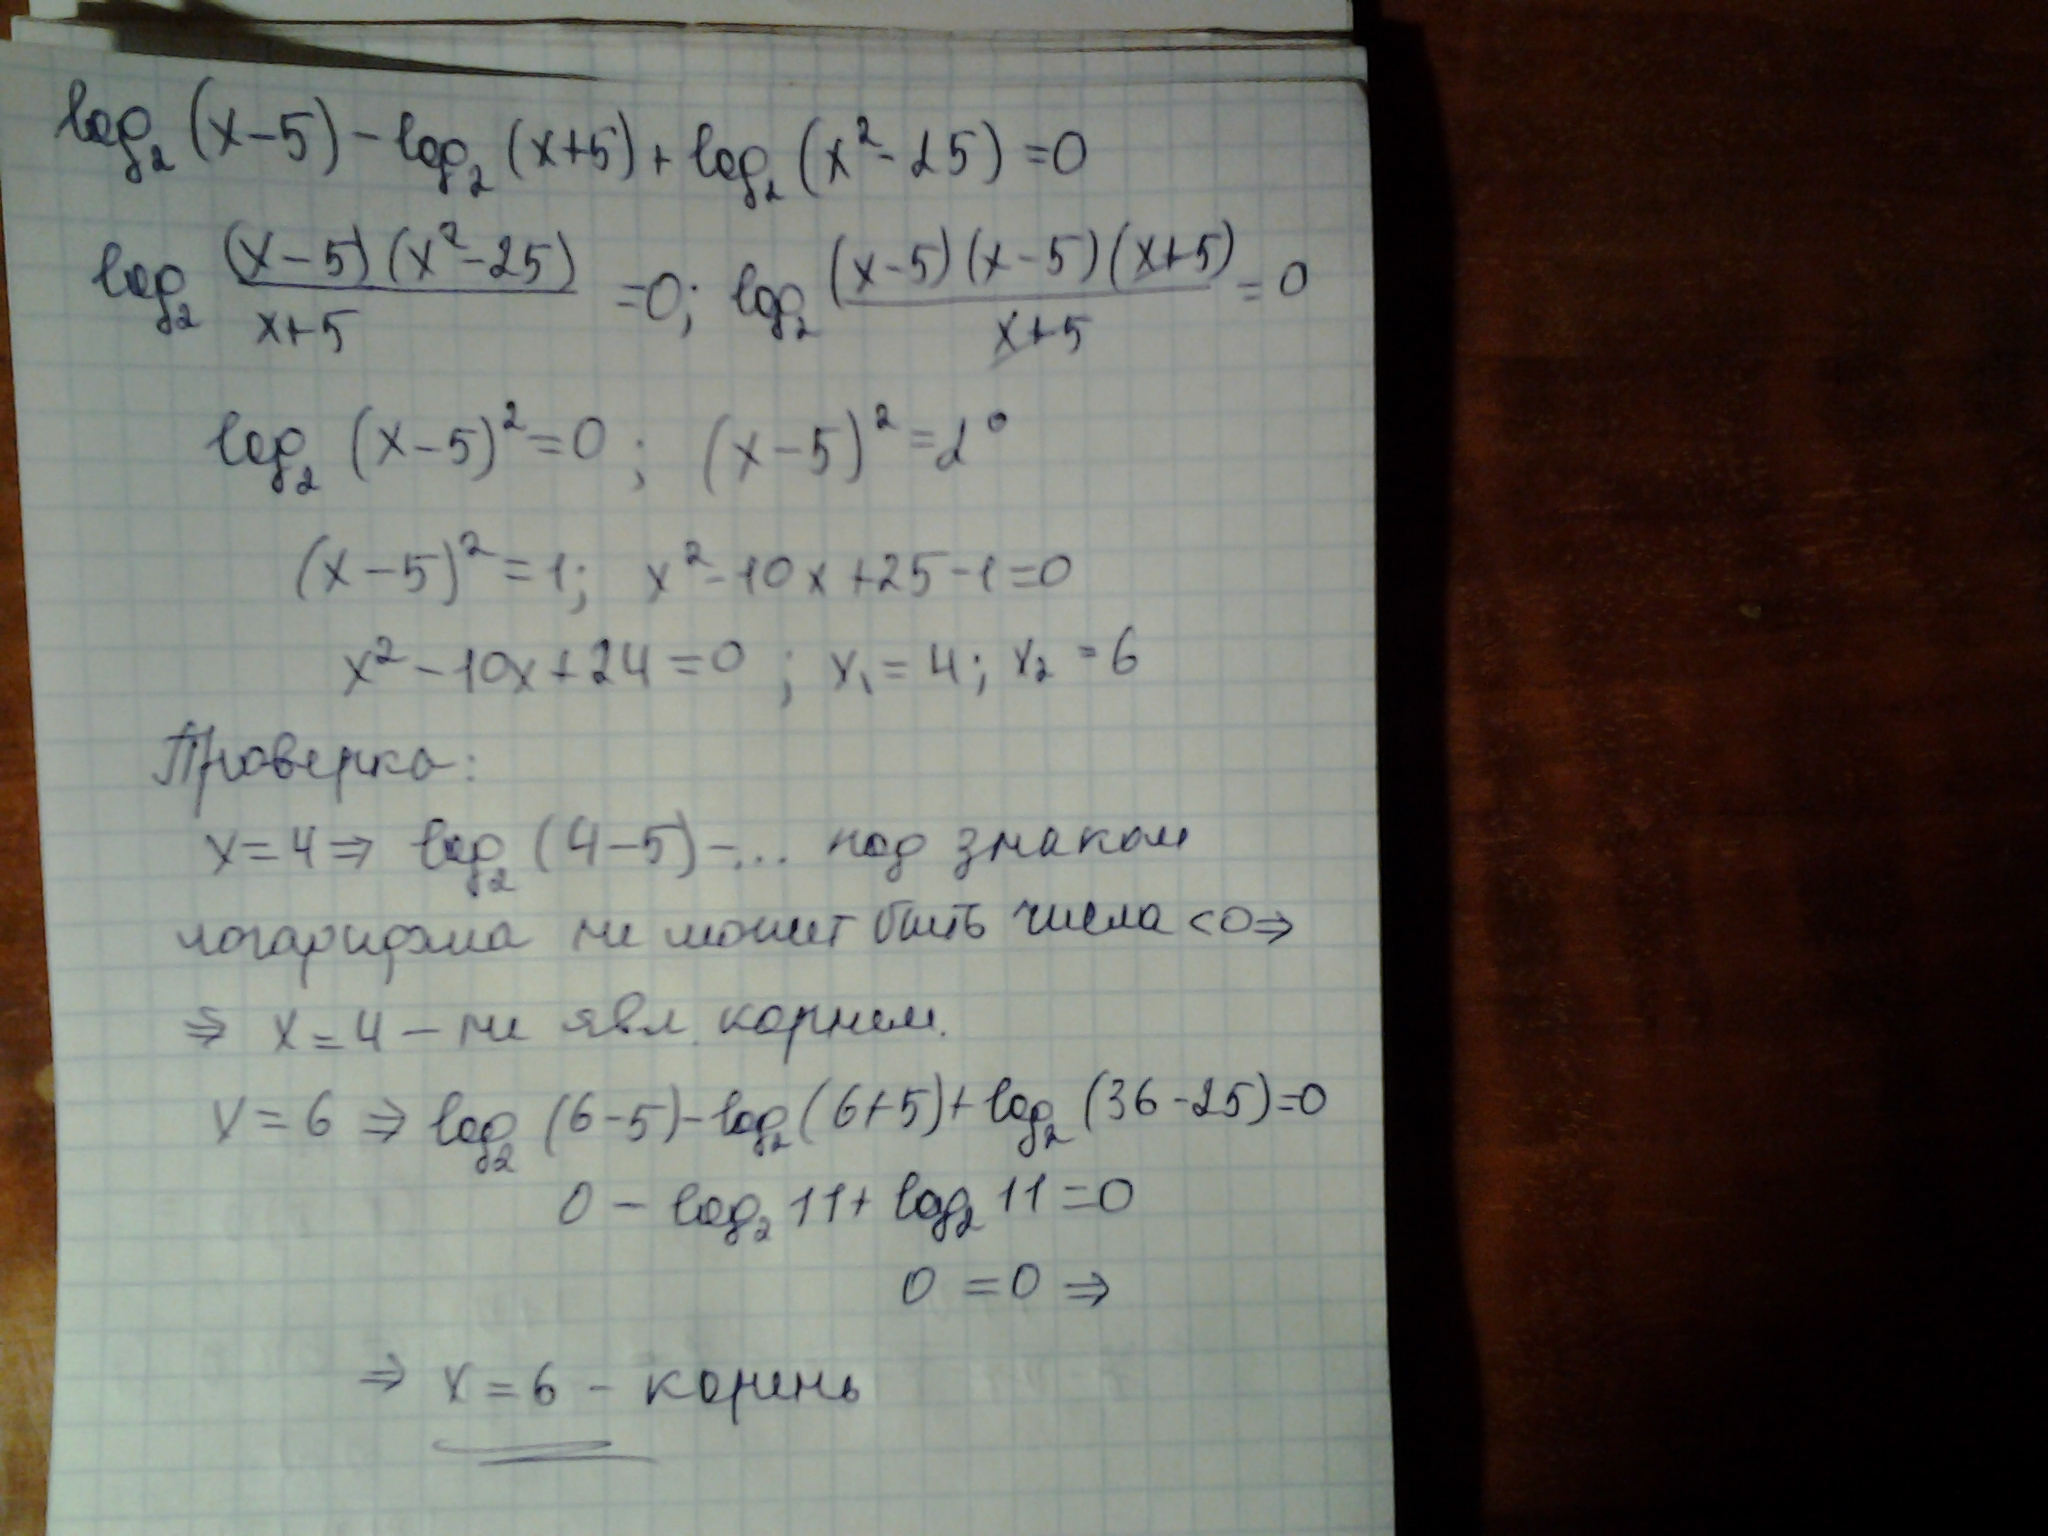 log₂(x-5) - log₂(x+5) + log₂(x²-25) = 0
log₂ (x-5)(x²-25)/(x+5) = 0; log₂ (x-5)(x-5)(x+5)/(x+5) = 0
log₂(x-5)² = 0; (x-5)² = 2⁰
(x-5)² = 1; x²-10x+25-1=0
x²-10x+24=0; x₁=4; x₂=6
Проверка:
x=4 ⇒ log₂(4-5)-... под знаком
логарифма не может быть числа <0 ⇒
⇒ x=4 - не явл. корнем.
x=6 ⇒ log₂(6-5)-log₂(6+5)+log₂(36-25)=0
0 - log₂11 + log₂11 = 0
0 = 0 ⇒
⇒ x=6 - корень